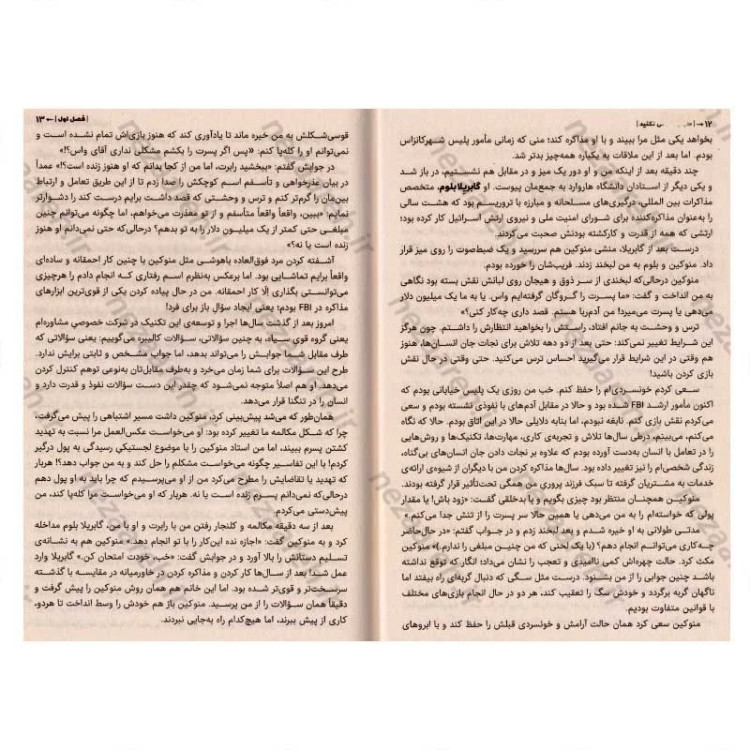 ۱۲
بخواهد یکی مثل مرا ببیند و با او مذاکره کند؛ منی که زمانی مأمور پلیس شهر کانزاس
بودم. اما بعد از این ملاقات به یکباره همه‌چیز بدتر شد.
چند دقیقه بعد از اینکه من و او دور یک میز و در مقابل هم نشستیم، در باز شد
و یکی دیگر از استادان دانشگاه هاروارد به جمع‌مان پیوست. او گابریلا بلوم، متخصص
مذاکرات بین المللی، درگیری‌های مسلحانه و مبارزه با تروریسم بود که هشت سالی
را به‌عنوان مذاکره‌کننده برای شورای امنیت ملی و نیروی ارتش اسرائیل کار کرده بود؛
ارتشی که همه از قدرت و کارکشته بودنش صحبت می‌کردند.
درست بعد از گابریلا، منشی منوکین هم سررسید و یک ضبط‌صوت را روی میز قرار
داد. منوکین و بلوم به من لبخند زدند. فریب‌شان را خورده بودم.
منوکین درحالی‌که لبخندی از سر ذوق و هیجان روی لبانش نقش بسته بود نگاهی
به من انداخت و گفت: «ما پسرت را گروگان گرفته‌ایم واس. یا به ما یک میلیون دلار
می‌دهی یا پسرت می‌میرد! من آدم‌ربا هستم. قصد داری چه‌کار کنی؟»
ترس و وحشت به جانم افتاد، راستش را بخواهید انتظارش را داشتم. چون هرگز
این شرایط تغییر نمی‌کند: حتی بعد از دو دهه تلاش برای نجات جان انسان‌ها، هنوز
هم وقتی در این شرایط قرار می‌گیرید احساس ترس می‌کنید. حتی وقتی در حال نقش
بازی کردن باشید!
سعی کردم خونسردی‌ام را حفظ کنم. خب من روزی یک پلیس خیابانی بودم که
اکنون مأمور ارشد FBI شده بود و حالا در مقابل آدم‌های با نفوذی نشسته بودم و سعی
می‌کردم نقش بازی کنم. نابغه نبودم، اما بنابه دلایلی حالا در این اتاق بودم. حالا که نگاه
می‌کنم، می‌بینم، درطی سال‌ها تلاش و تجربه‌ی کاری، مهارت‌ها، تکنیک‌ها و روش‌هایی
را در تعامل با انسان به‌دست آورده بودم که علاوه بر نجات دادن جان انسان‌های بی‌گناه،
زندگی شخصی‌ام را نیز تغییر داده بود. سال‌ها مذاکره کردن من با دیگران از شیوه‌ی ارائه‌ی
خدمات به مشتریان گرفته تا سبک فرزند پروری من همگی تحت‌تأثیر قرار گرفته بودند.
منوکین همچنان منتظر بود چیزی بگویم و با بدخلقی گفت: «زود باش! یا مقدار
پولی که خواسته‌ام را به من می‌دهی یا همین حالا سر پسرت را از تنش جدا می‌کنم.»
مدتی طولانی به او خیره شدم و بعد لبخند زدم و در جواب گفتم: «در حال‌حاضر
چه‌کاری می‌توانم انجام دهم؟ (با یک لحنی که من چنین مبلغی را ندارم.)» منوکین
مکث کرد. حالت چهره‌اش کمی ناامیدی و تعجب را نشان می‌داد؛ انگار که توقع نداشته
باشد چنین جوابی را از من بشنود. درست مثل سگی که دنبال گربه‌ای راه بیفتد اما
ناگهان گربه برگردد و خودش سگ را تعقیب کند، هر دو در حال انجام بازی‌های مختلف
با قوانین متفاوت بودیم.
منوکین سعی کرد همان حالت آرامش و خونسردی قبلش را حفظ کند و با ابروهای
| فصل اول | ۱۳
قوسی‌شکلش به من خیره ماند تا یادآوری کند که هنوز بازی‌اش تمام نشده است و
نمی‌توانم او را کله‌پا کنم: «پس اگر پسرت را بکشم مشکلی نداری آقای واس؟!»
در جوابش گفتم: «ببخشید رابرت، اما من از کجا بدانم که او هنوز زنده است؟!» عمداً
در بیان عذرخواهی و تأسفم اسم کوچکش را صدا زدم تا از این طریق تعامل و ارتباط
بین‌مان را گرم‌تر کنم و ترس و وحشتی که قصد داشت برایم درست کند را دشوارتر
نمایم: «ببین، واقعاً واقعاً متأسفم و از تو معذرت می‌خواهم، اما چگونه می‌توانم چنین
مبلغی حتی کمتر از یک میلیون دلار را به تو بدهم؟ درحالی‌که حتی نمی‌دانم او هنوز
زنده است یا نه؟»
آشفته کردن مرد فوق‌العاده باهوشی مثل منوکین با چنین کار احمقانه و ساده‌ای
واقعاً برایم تماشایی بود. اما برعکس به‌نظرم اسم رفتاری که انجام دادم را هرچیزی
می‌توانستی بگذاری إلّا کار احمقانه. من در حال پیاده کردن یکی از قوی‌ترین ابزارهای
مذاکره در FBI بودم؛ یعنی ایجاد سؤال باز برای فرد!
امروز بعد از گذشت سال‌ها اجرا و توسعه‌ی این تکنیک در شرکت خصوصیِ مشاوره‌ام
یعنی گروه قوی سیاه، به چنین سؤالاتی، سؤالات کالیبره می‌گوییم: یعنی سؤالاتی که
طرف مقابل شما جوابش را می‌تواند بدهد، اما جواب مشخص و ثابتی برایش ندارد.
طرح این سؤالات برای شما زمان می‌خرد و به‌طرف مقابل‌تان به‌نوعی توهم کنترل کردن
می‌دهد. او هم اصلاً متوجه نمی‌شود که چقدر این دست سؤالات نفوذ و قدرت دارد و
انسان را در تنگنا قرار می‌دهد.
همان‌طور که می‌شد پیش‌بینی کرد، منوکین داشت مسیر اشتباهی را پیش می‌گرفت،
چرا که شکل مکالمه ما تغییر کرده بود: او می‌خواست عکس‌العمل مرا نسبت به تهدید
کشتن پسرم ببیند، اما من استاد منوکین را با موضوع لجستیکی رسیدگی به پول درگیر
کردم! با این تفاسیر چگونه می‌خواست مشکلم را حل کند و به من جواب دهد؟! هربار
که تهدید یا تقاضایش را مطرح می‌کرد من از او می‌پرسیدم که چرا باید به او پول دهم
درحالی‌که نمی‌دانم پسرم زنده است یا نه. هربار که او می‌خواست مرا کله‌پا کند، من
پیش‌دستی می‌کردم.
بعد از سه دقیقه مکالمه و کلنجار رفتن من با رابرت و او با من، گابریلا بلوم مداخله
کرد و به منوکین گفت: «اجازه نده این‌کار را با تو انجام دهد.» منوکین هم به نشانه‌ی
تسلیم دستانش را بالا آورد و در جوابش گفت: «خب، خودت امتحان کن.» گابریلا وارد
عمل شد! بعد از سال‌ها کار کردن و مذاکره کردن در خاورمیانه در مقایسه با گذشته
سرسخت‌تر و قوی‌تر شده بود. اما این خانم هم همان روش منوکین را پیش گرفت و
دقیقاً همان سؤالات را از من پرسید. منوکین باز هم خودش را وسط انداخت تا هردو،
کاری از پیش ببرند، اما هیچ‌کدام راه به‌جایی نبردند.